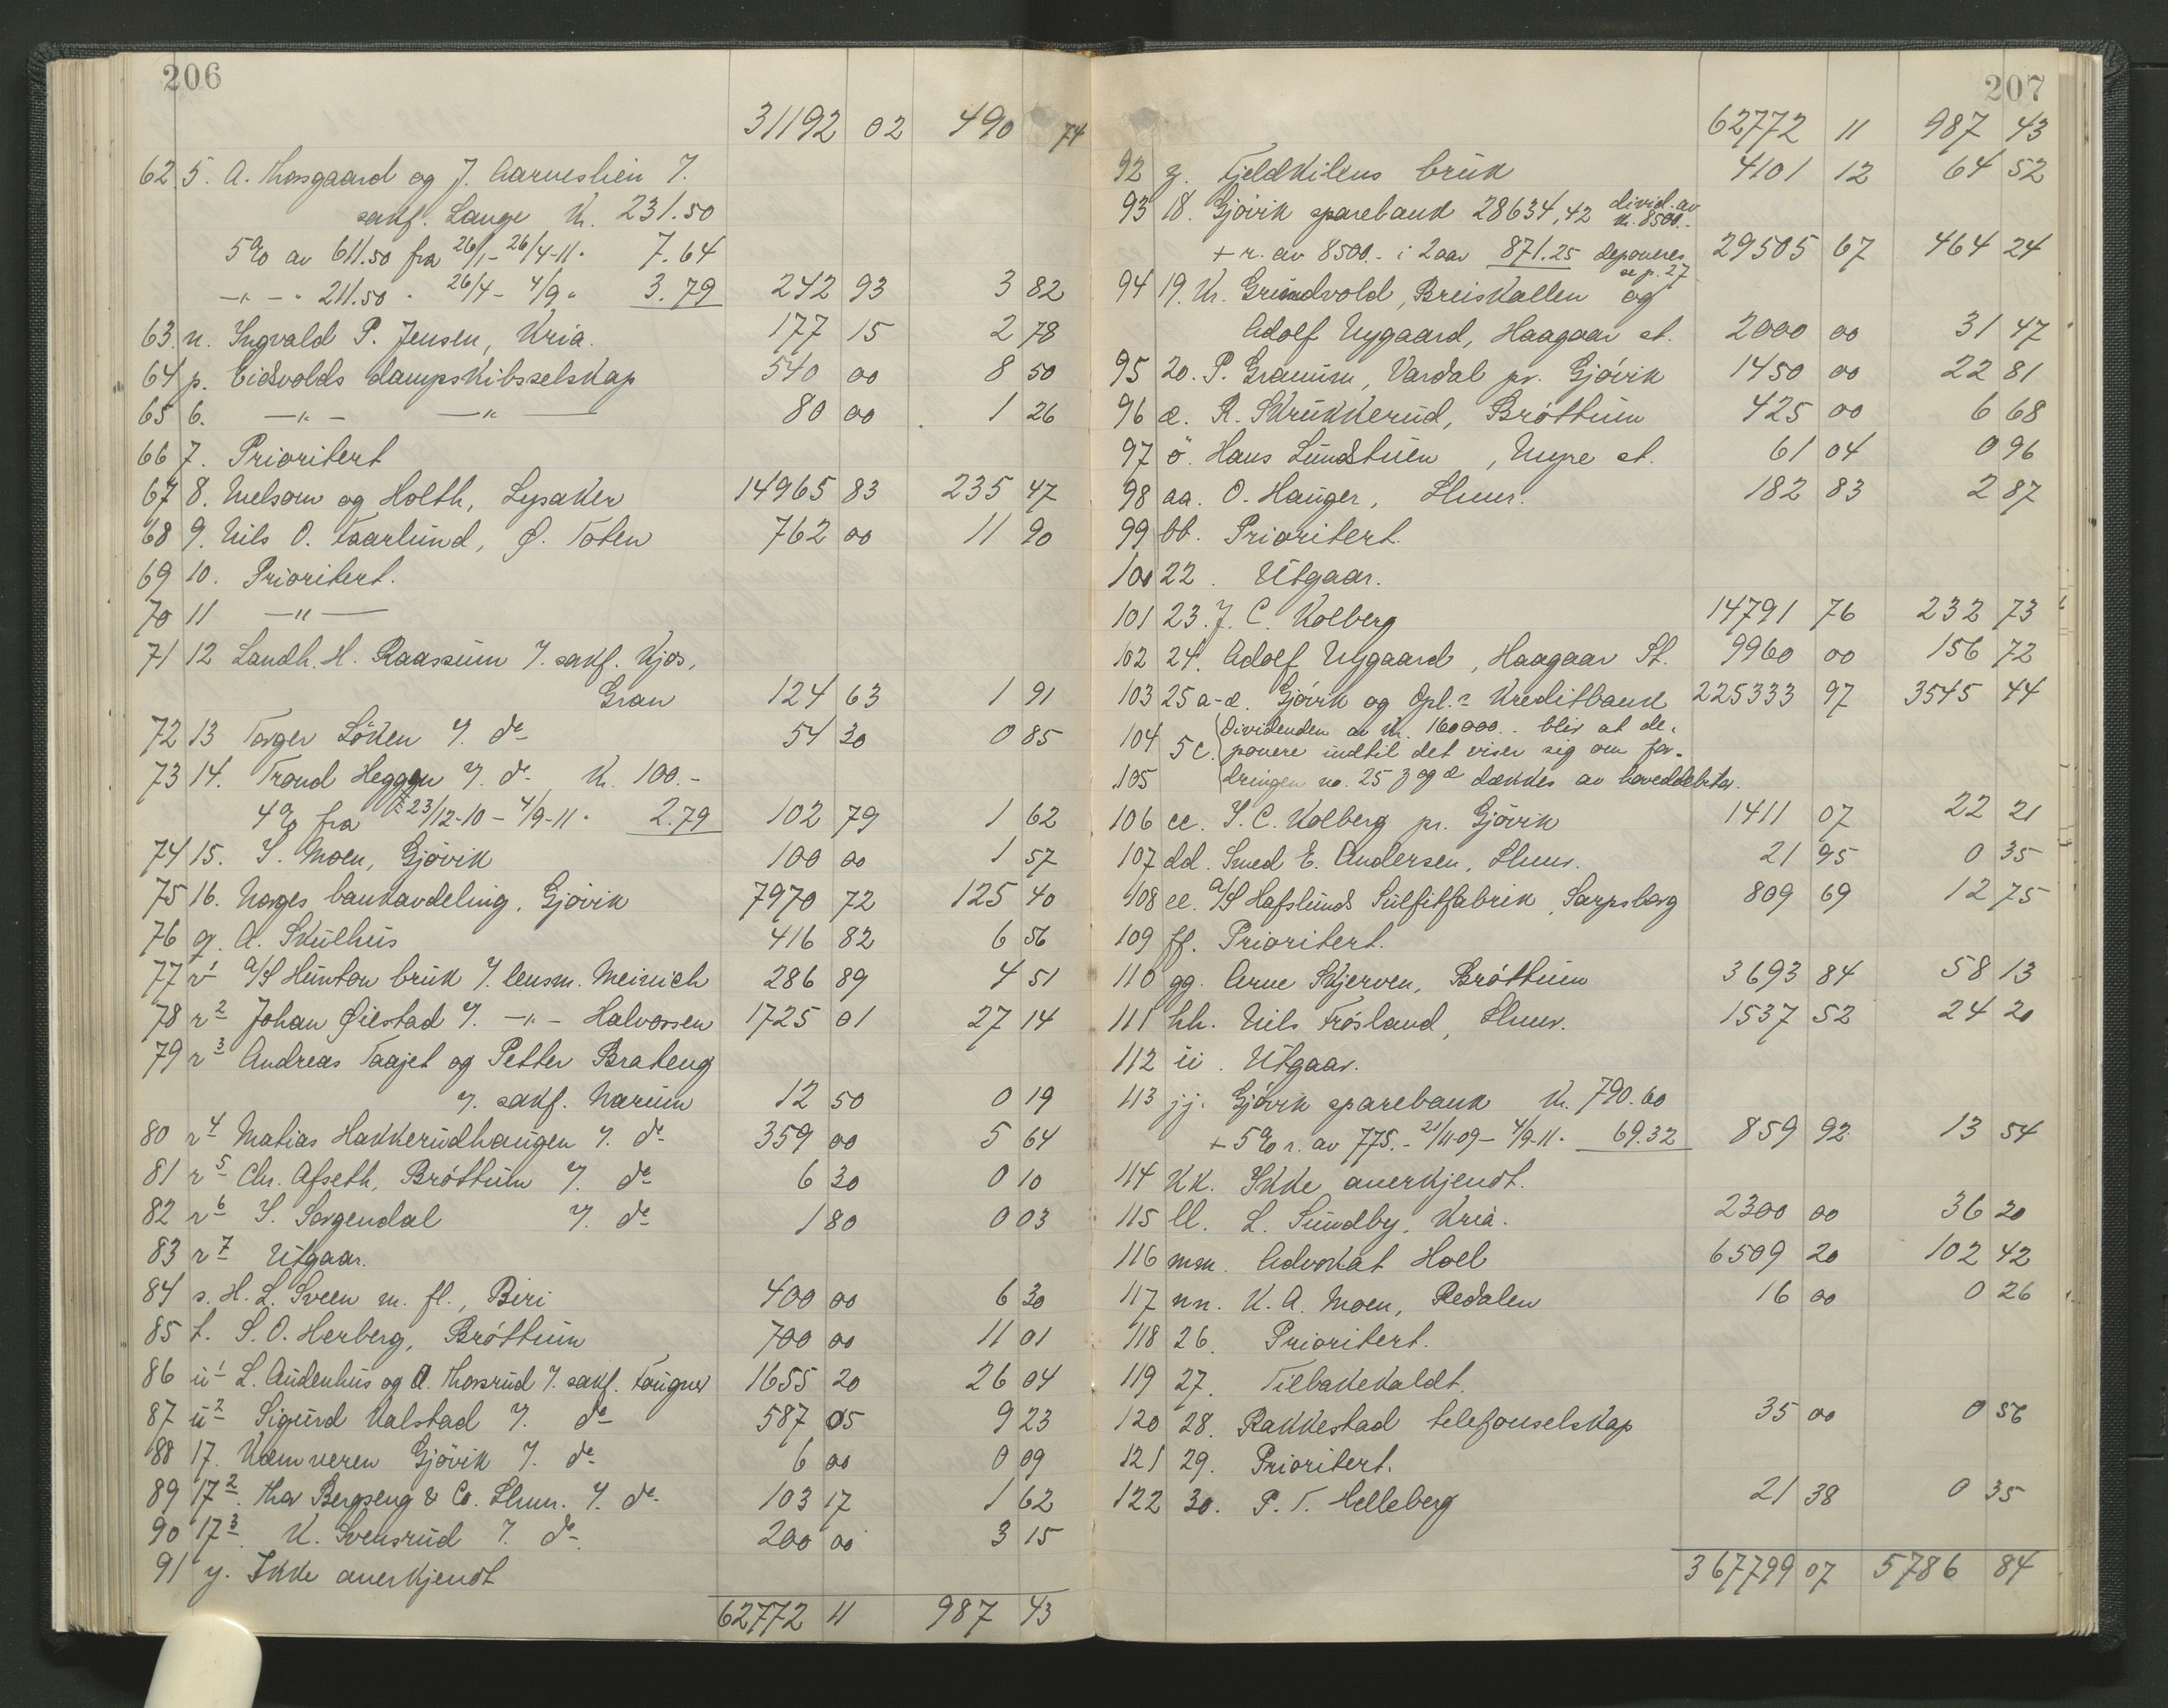 206
31192 02 490 74
62 5. A. Thosgaard og J. Aarneslien v.
sakf. Lange Kr. 231.50
5% av 611.50 fra 26/1 - 26/4-11 " 7.64
—"— " 211.50 " 26/4 - 4/9 " 3.79 242 93 3 82
63. n. Ingvald P. Jensen, Kria. 177 15 2 78
64 p. Eidsvolds dampskibsselskap 540 00 8 50
65 6. —"— —"— 80 00 1 26
66 7. Prioritert
67 8. Melsom og Holth, Lysaker 14965 83 235 47
68 9. Nils O. Faarlund, Ø. Toten 762 00 11 90
69 10. Prioritert.
70 11 —"—
71 12 Landh. H. Raassum v. sakf. Kjos,
Gran 124 63 1 91
72 13 Torger Löken v. do 54 30 0 85
73 14. Trond Heggen v. do Kr. 100.-
4% fra 23/12-10 - 4/9-11 " 2.79 102 79 1 62
74 15. S. Moen, Gjövik 100 00 1 57
75 16. Norges bankavdeling, Gjövik 7970 72 125 40
76 q. A. Skulhus 416 82 6 56
77 r1 A/S Hunton bruk v. lensm. Meinich 286 89 4 51
78 r2 Johan Øiestad v. —"— Halvorsen 1725 01 27 14
79 r3 Andreas Taajet og Petter Brateng
v. sakf. Narum 12 50 0 19
80 r4 Matias Hakkerudhaugen v. do 359 00 5 64
81 r5 Chr. Afseth, Bröttum v. do 6 30 0 10
82 r6 S. Sorgendal v. do 1 80 0 03
83 r7 Utgaar.
84 s. H. L. Sveen m. fl., Biri 400 00 6 30
85 t. S. O. Herberg, Bröttum 700 00 11 01
86 u1 L. Audenhus og A. Thosrud v. sakf. Fougner 1655 20 26 04
87 u2 Sigurd Kalstad v. do 587 05 9 23
88 17. Kemneren Gjövik v. do 6 00 0 09
89 17 2. Thor Bergseng & Co. Lhmr. v. do 103 17 1 62
90 17 3. K. Svensrud v. do 200 00 3 15
91 y. Ikke anerkjendt
62772 11 987 43
207
62772 11 987 43
92 z. Fjeldkilens bruk 4101 12 64 52
93 18. Gjövik sparebank 28634,42 divid. av kr. 8500.-
+ r. av 8500.- i 2 aar 871.25 deponeres 29505 67 464 24
se p. 27
94 19. Kr. Grindvold, Breiskallen og
Adolf Nygaard, Haagaar st. 2000 00 31 47
95 20. P. Granum, Vardal pr. Gjövik 1450 00 22 81
96 æ. R. Skrukkerud, Bröttum 425 00 6 68
97 ö. Hans Lundstuen, Myre st. 61 04 0 96
98 aa. O. Hauger, Lhmr. 182 83 2 87
99 bb. Prioritert.
100 22. Utgaar.
101 23. J. C. Kolberg 14791 76 232 73
102 24. Adolf Nygaard, Haagaar St. 9960 00 156 72
103 25 a-æ. Gjövik og Opl.s Kreditbank 225333 97 3545 44
104 5 c. Dividenden av kr. 160000.- blir at de-
ponere indtil det viser sig om for-
105 dringen no. 25 z og æ dækkes av hoveddebitor.
106 cc. J. C. Kolberg pr. Gjövik 1411 07 22 21
107 dd. Smed E. Andersen, Lhmr. 21 95 0 35
108 ee. A/S Hafslunds Sulfitfabrik, Sarpsborg 809 69 12 75
109 ff. Prioritert.
110 gg. Arne Skjerven, Bröttum 3693 84 58 13
111 hh. Nils Frösland, Lhmr. 1537 52 24 20
112 ii. Utgaar.
113 jj. Gjövik sparebank Kr. 790.60
+ 5% r. av 775.- 21/11-09 - 4/9-11 " 69.32 859 92 13 54
114 kk. Ikke anerkjendt.
115 ll. L. Sundby, Kria. 2300 00 36 20
116 mm. Advokat Hoel 6509 20 102 42
117 nn. K. A. Moen, Redalen 16 00 0 26
118 26. Prioritert.
119 27. Tilbakekaldt.
120 28. Rakkestad telefonselskap 35 00 0 56
121 29. Prioritert.
122 30. P. T. Helleberg 21 38 0 35
367799 07 5786 84